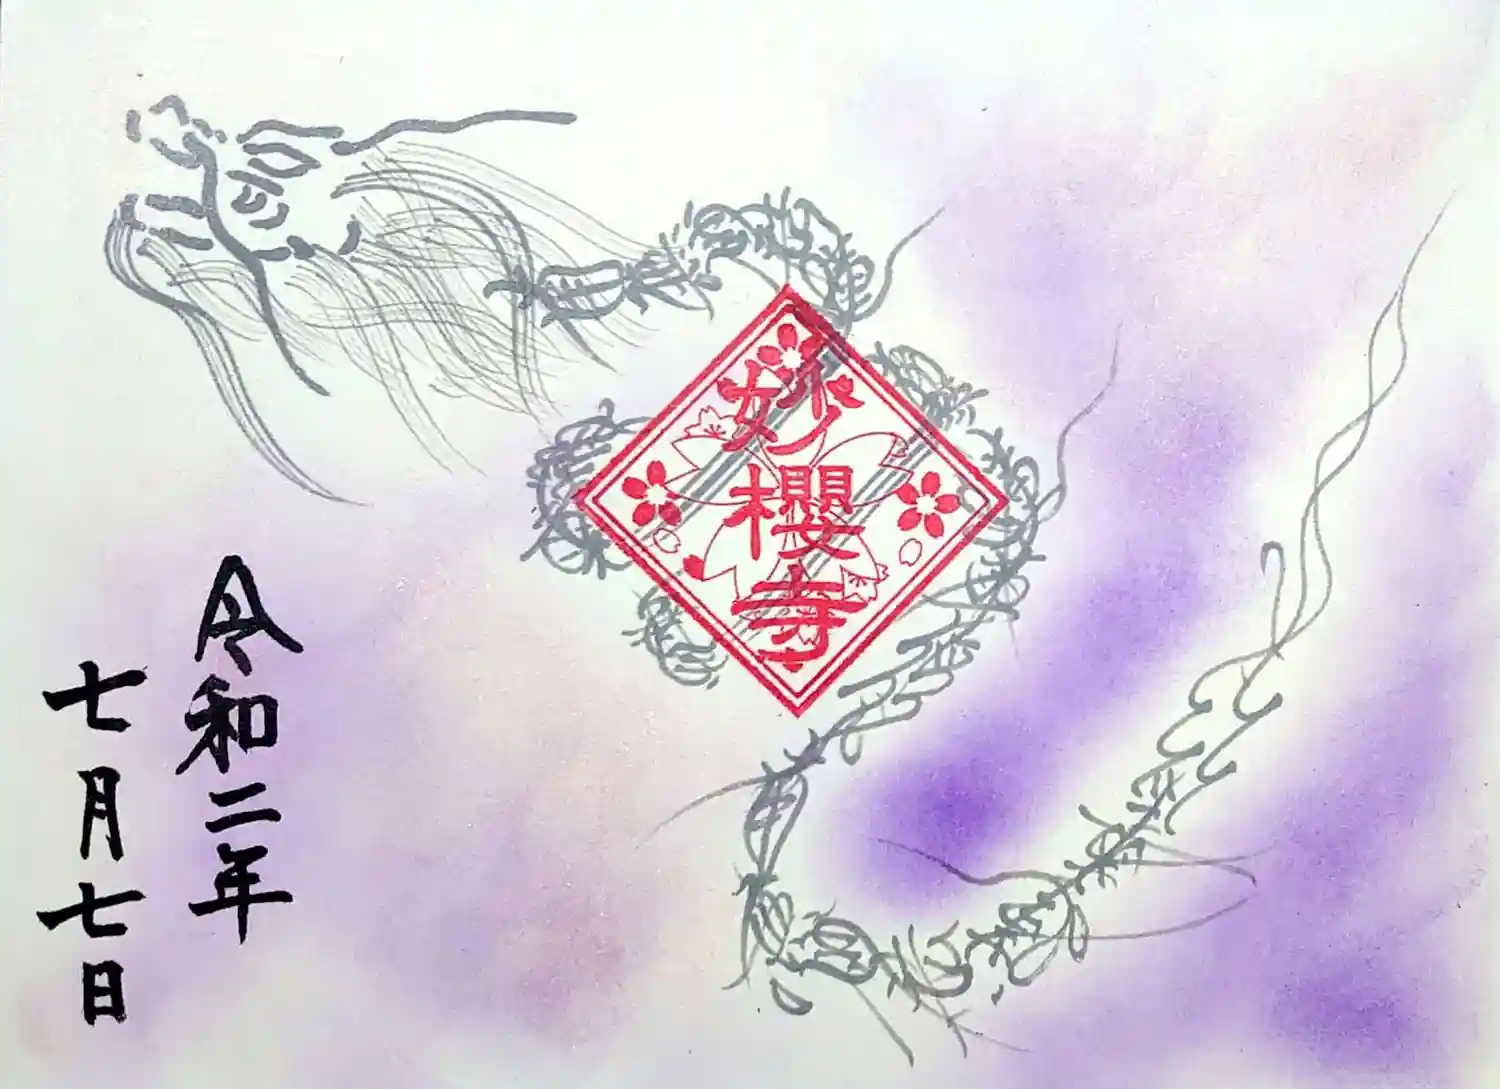 妙櫻寺
令和二年
七月七日